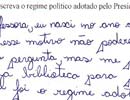 screva o regime político adotado pelo Presi
fessora, eu nasci no ano s
esse motivo não poderei
pergunta, mas me p
a biblioteca para
l foi o regime ado